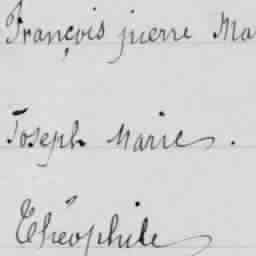 François pierre Ma
Joseph Marie.
Théophile